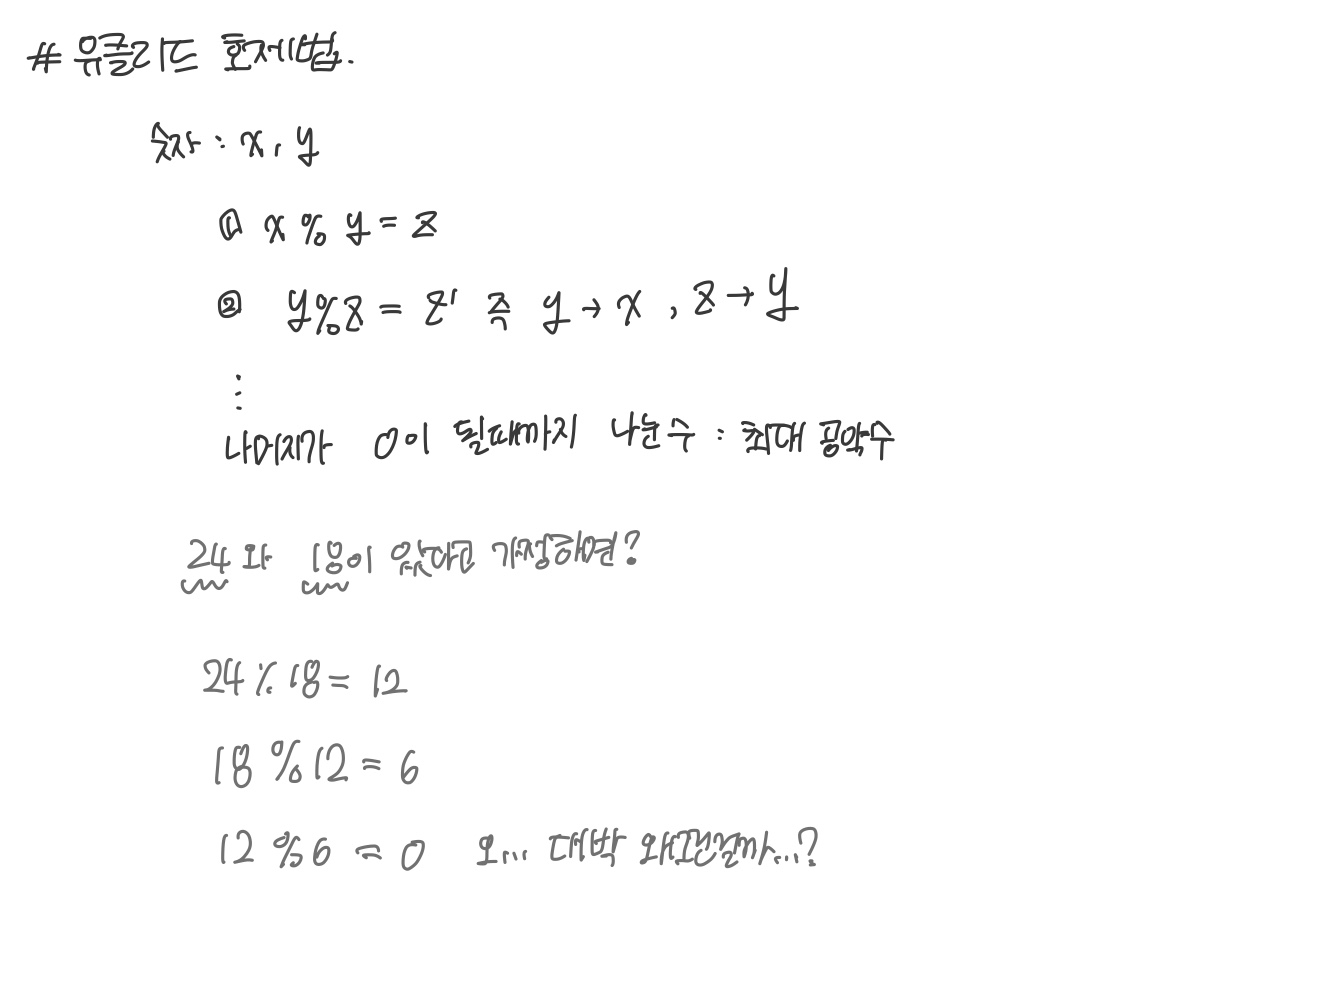 # 유클리드 호제법.
숫자 : x, y
① x % y = z
② y%z = z' 즉 y → x , z → y
⋮
나머지가 0이 될때까지 나눈수 : 최대 공약수
24와 18이 있다고 가정하면?
24 % 18 = 12
18 % 12 = 6
12 % 6 = 0 오... 대박 왜그런걸까...?